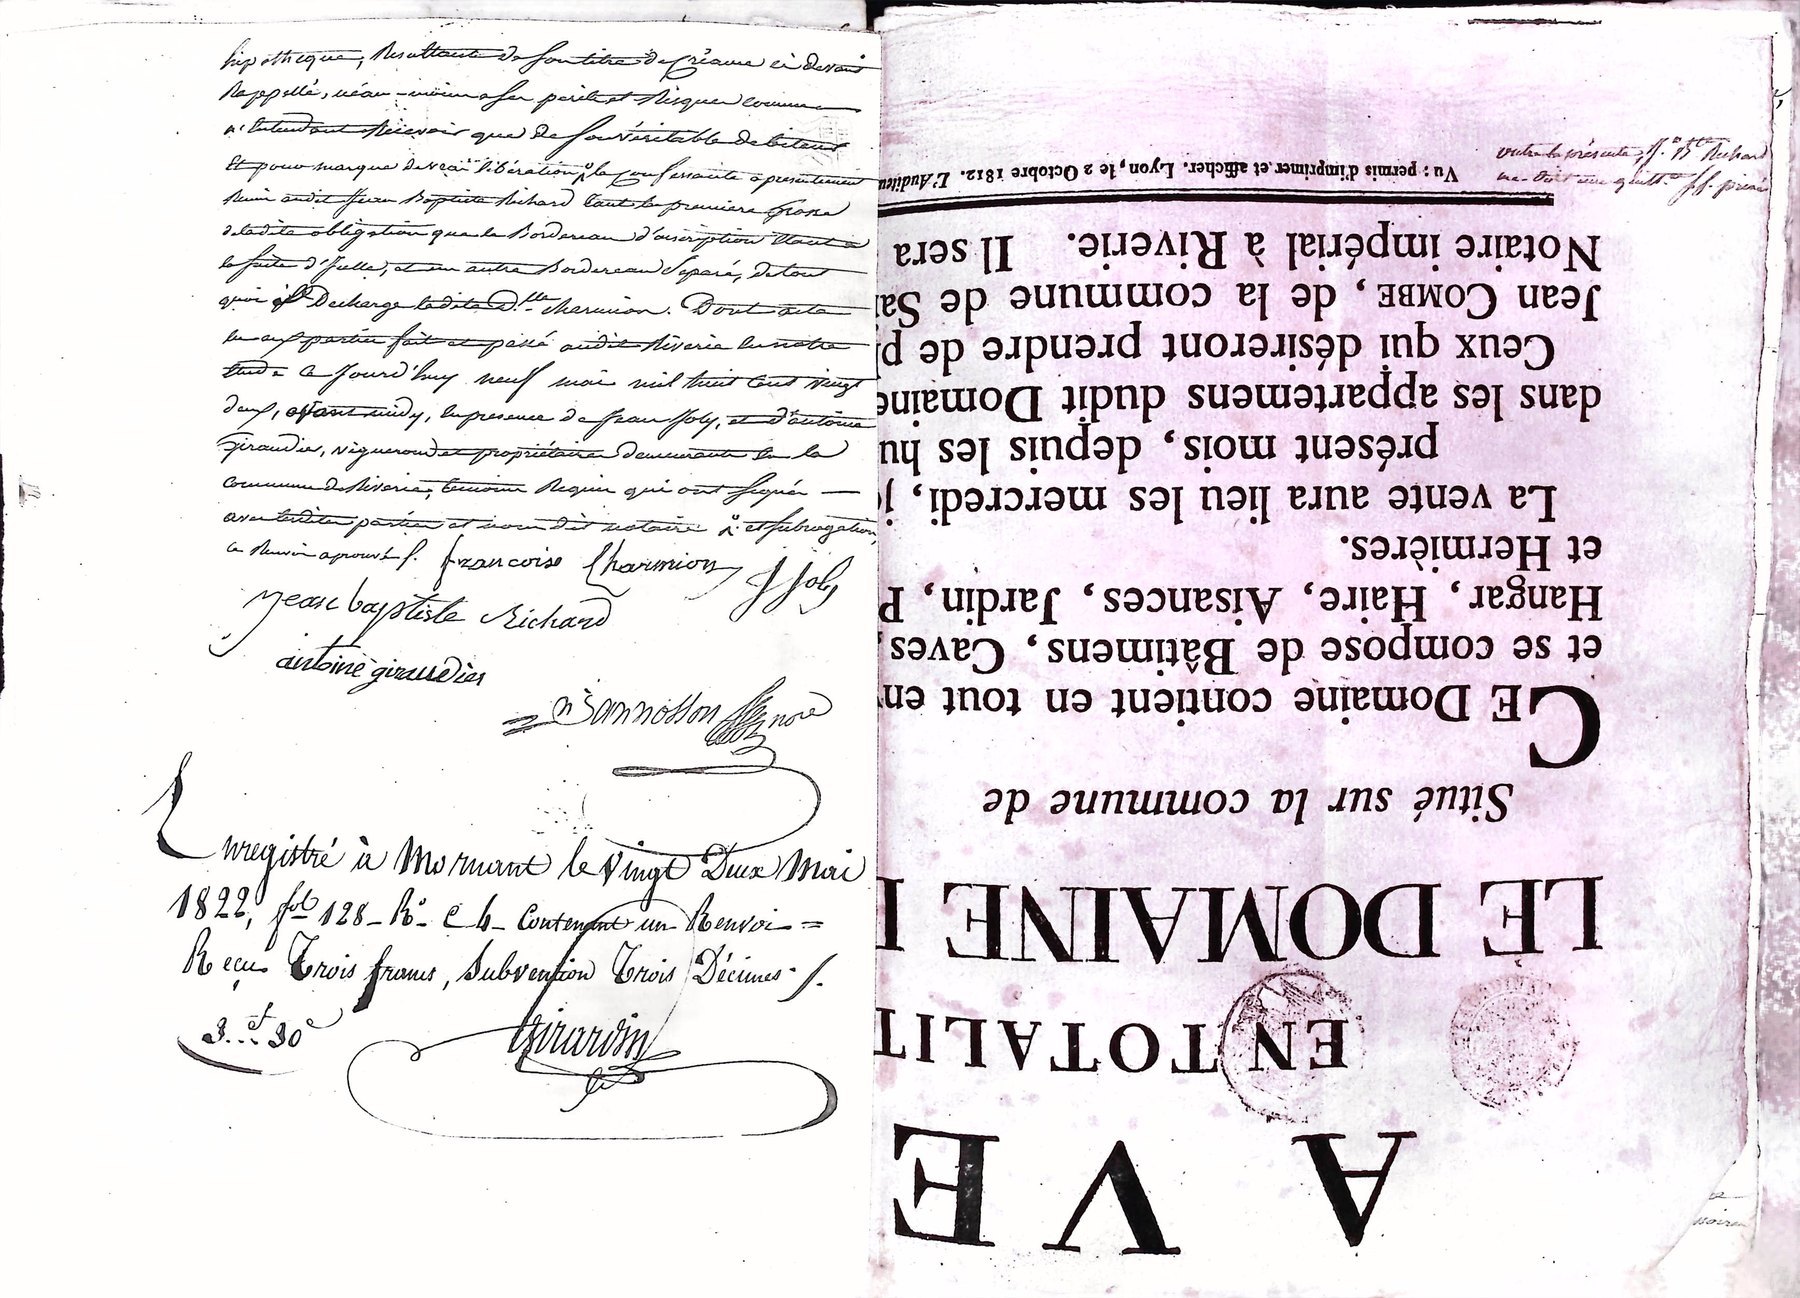 hipothèque, Resultante de son titre de Créance ci devant
Rappellé, néan-moins a ses perils et Risques comme
n'entendant Recevoir que de son véritable debiteur
Et pour marque de vraie libération, la confessante a presentement
Remis audit Jean Baptiste Richard tant la premiere Grosse
de ladite obligation que le Bordereau d'inscription Etant a
la suite d'Icelle, et un autre Bordereau separé, de tout
quoi Decharge ladite D.lle charmion. Dont acte
lu aux parties fait et passé audit Riverie en notre
Etude Ce Jourd'huy neuf mai mil huit cent vingt
deux, avant midy, En presence de Jean Joly, et d'antoine
Giraudier, vignerons et propriétaires demeurants en la
commune de Riverie, temoins Requis qui ont signés —
avec lesdites parties et nous dit notaire et subrogation,
ce Renvoi aprouvé /.
francoise Charmion J Joly
Jean baptiste Richard
antoine giraudier
nore
Enregistré à Mornant le vingt Deux Mai
1822, fol 128 Ro C 4 Contenant un Renvoi =
Reçu Trois francs, Subvention Trois Décimes /.
3 f 30 c
Girardin
A VE
EN TOTALIT
LE DOMAINE
Situé sur la commune de
CE Domaine contient en tout en
et se compose de Bâtimens, Caves,
Hangar, Haire, Aisances, Jardin, P
et Hermières.
La vente aura lieu les mercredi, j
présent mois, depuis les hu
dans les appartemens dudit Domaine
Ceux qui désireront prendre de p
Jean COMBE, de la commune de Sa
Notaire impérial à Riverie. Il sera
Vu : permis d'imprimer et afficher. Lyon, le 2 Octobre 1812. L'Auditeu
outre la présente, J.n B.te Richard